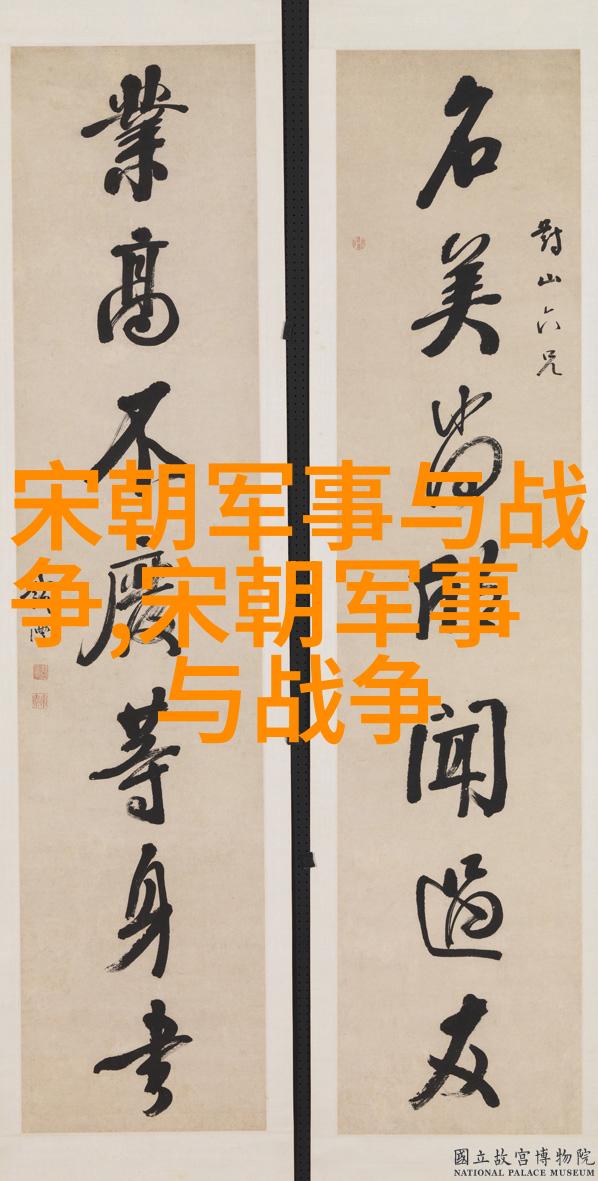 名美尚聞過友
對山六兄
業高不廢等身書
宋朝军事与战
争,宋朝军事
与战争
國立故宮博物院
NATIONAL PALACE MUSEUM